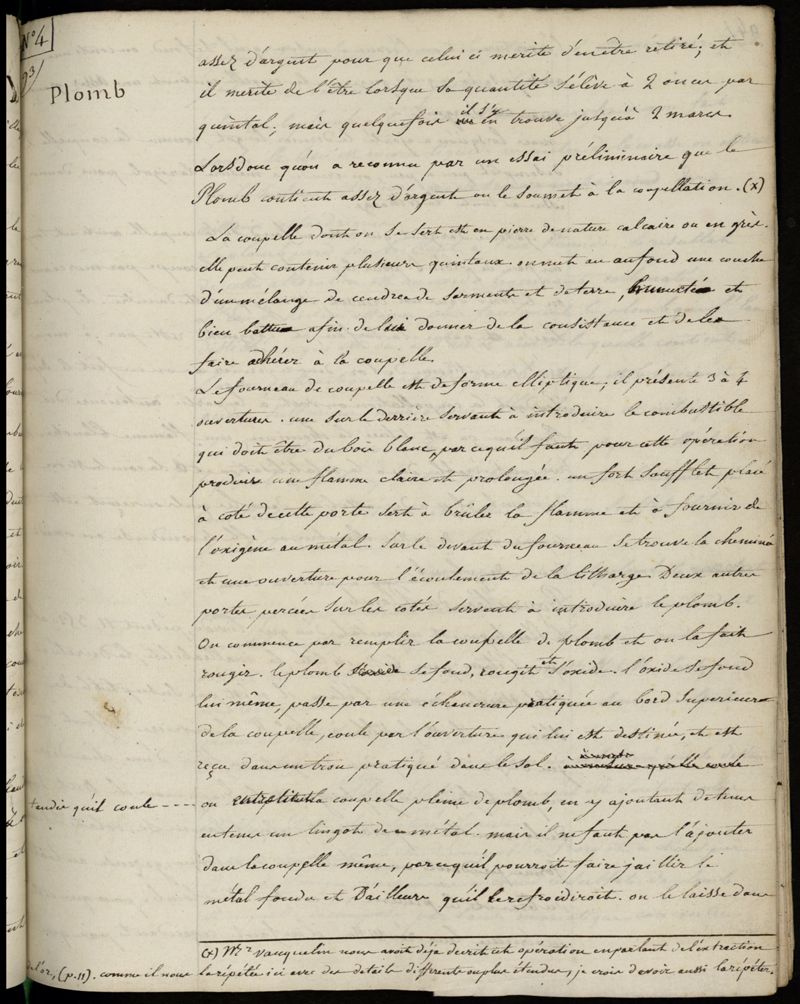 N°4
93)
Plomb
assez d'argent pour que celui ci merite d'en être retiré; et
il merite de l'être lorsque sa quantité s'élève à 2 onces par
quintal; mais quelquefois il s'y en trouve jusqu'à 2 marcs.
Lors donc qu'on a reconnu par un essai préliminaire que le
Plomb contient assez d'argent on le soumet à la coupellation. (x)
La coupelle dont on se sert est en pierre de nature calcaire ou en grès.
elle peut contenir plusieurs quintaux. on met au au fond une couche
d'un mélange de cendres de sarments et de terre, humectée et
bien battue afin de lui donner de la consistance et de les
faire adhérer à la coupelle.
Le fourneau de coupelle est de forme elliptique; il présente 3 à 4
ouvertures. une sur le derrière servant à introduire le combustible
qui doit être du bois blanc, parcequ'il faut pour cette opération
produire une flamme claire et prolongée. un fort soufflet placé
à coté de cette porte sert à brûler la flamme et à fournir de
l'oxigène au métal. sur le devant du fourneau se trouve la cheminée
et une ouverture pour l'écoulement de la litharge. Deux autres
portes percées sur les cotés servent à introduire le plomb.
On commence par remplir la coupelle de plomb et on la fait
rougir. le plomb se fond, rougit et s'oxide. l'oxide se fond
lui même, passe par une échancrure pratiquée au bord supérieur
de la coupelle, coule par l'ouverture qui lui est destinée, et est
reçu dans un trou pratiqué dans le sol. à mesure qu'elle coule
tandis qu'il coule ----
on entretient la coupelle pleine de plomb, en y ajoutant de tems
en tems un lingot de ce métal. mais il ne faut pas l'ajouter
dans la coupelle même, parcequ'il pourroit faire jaillir le
métal fondu et D'ailleurs qu'il le refroidiroit. on le laisse dans
(x) Mr. Vauquelin nous avoit déja decrit cet opération en parlant de l'extraction
de l'or, (p. 11). comme il nous la répétée ici avec des details differents ou plus étendus, je crois devoir aussi la répéter.